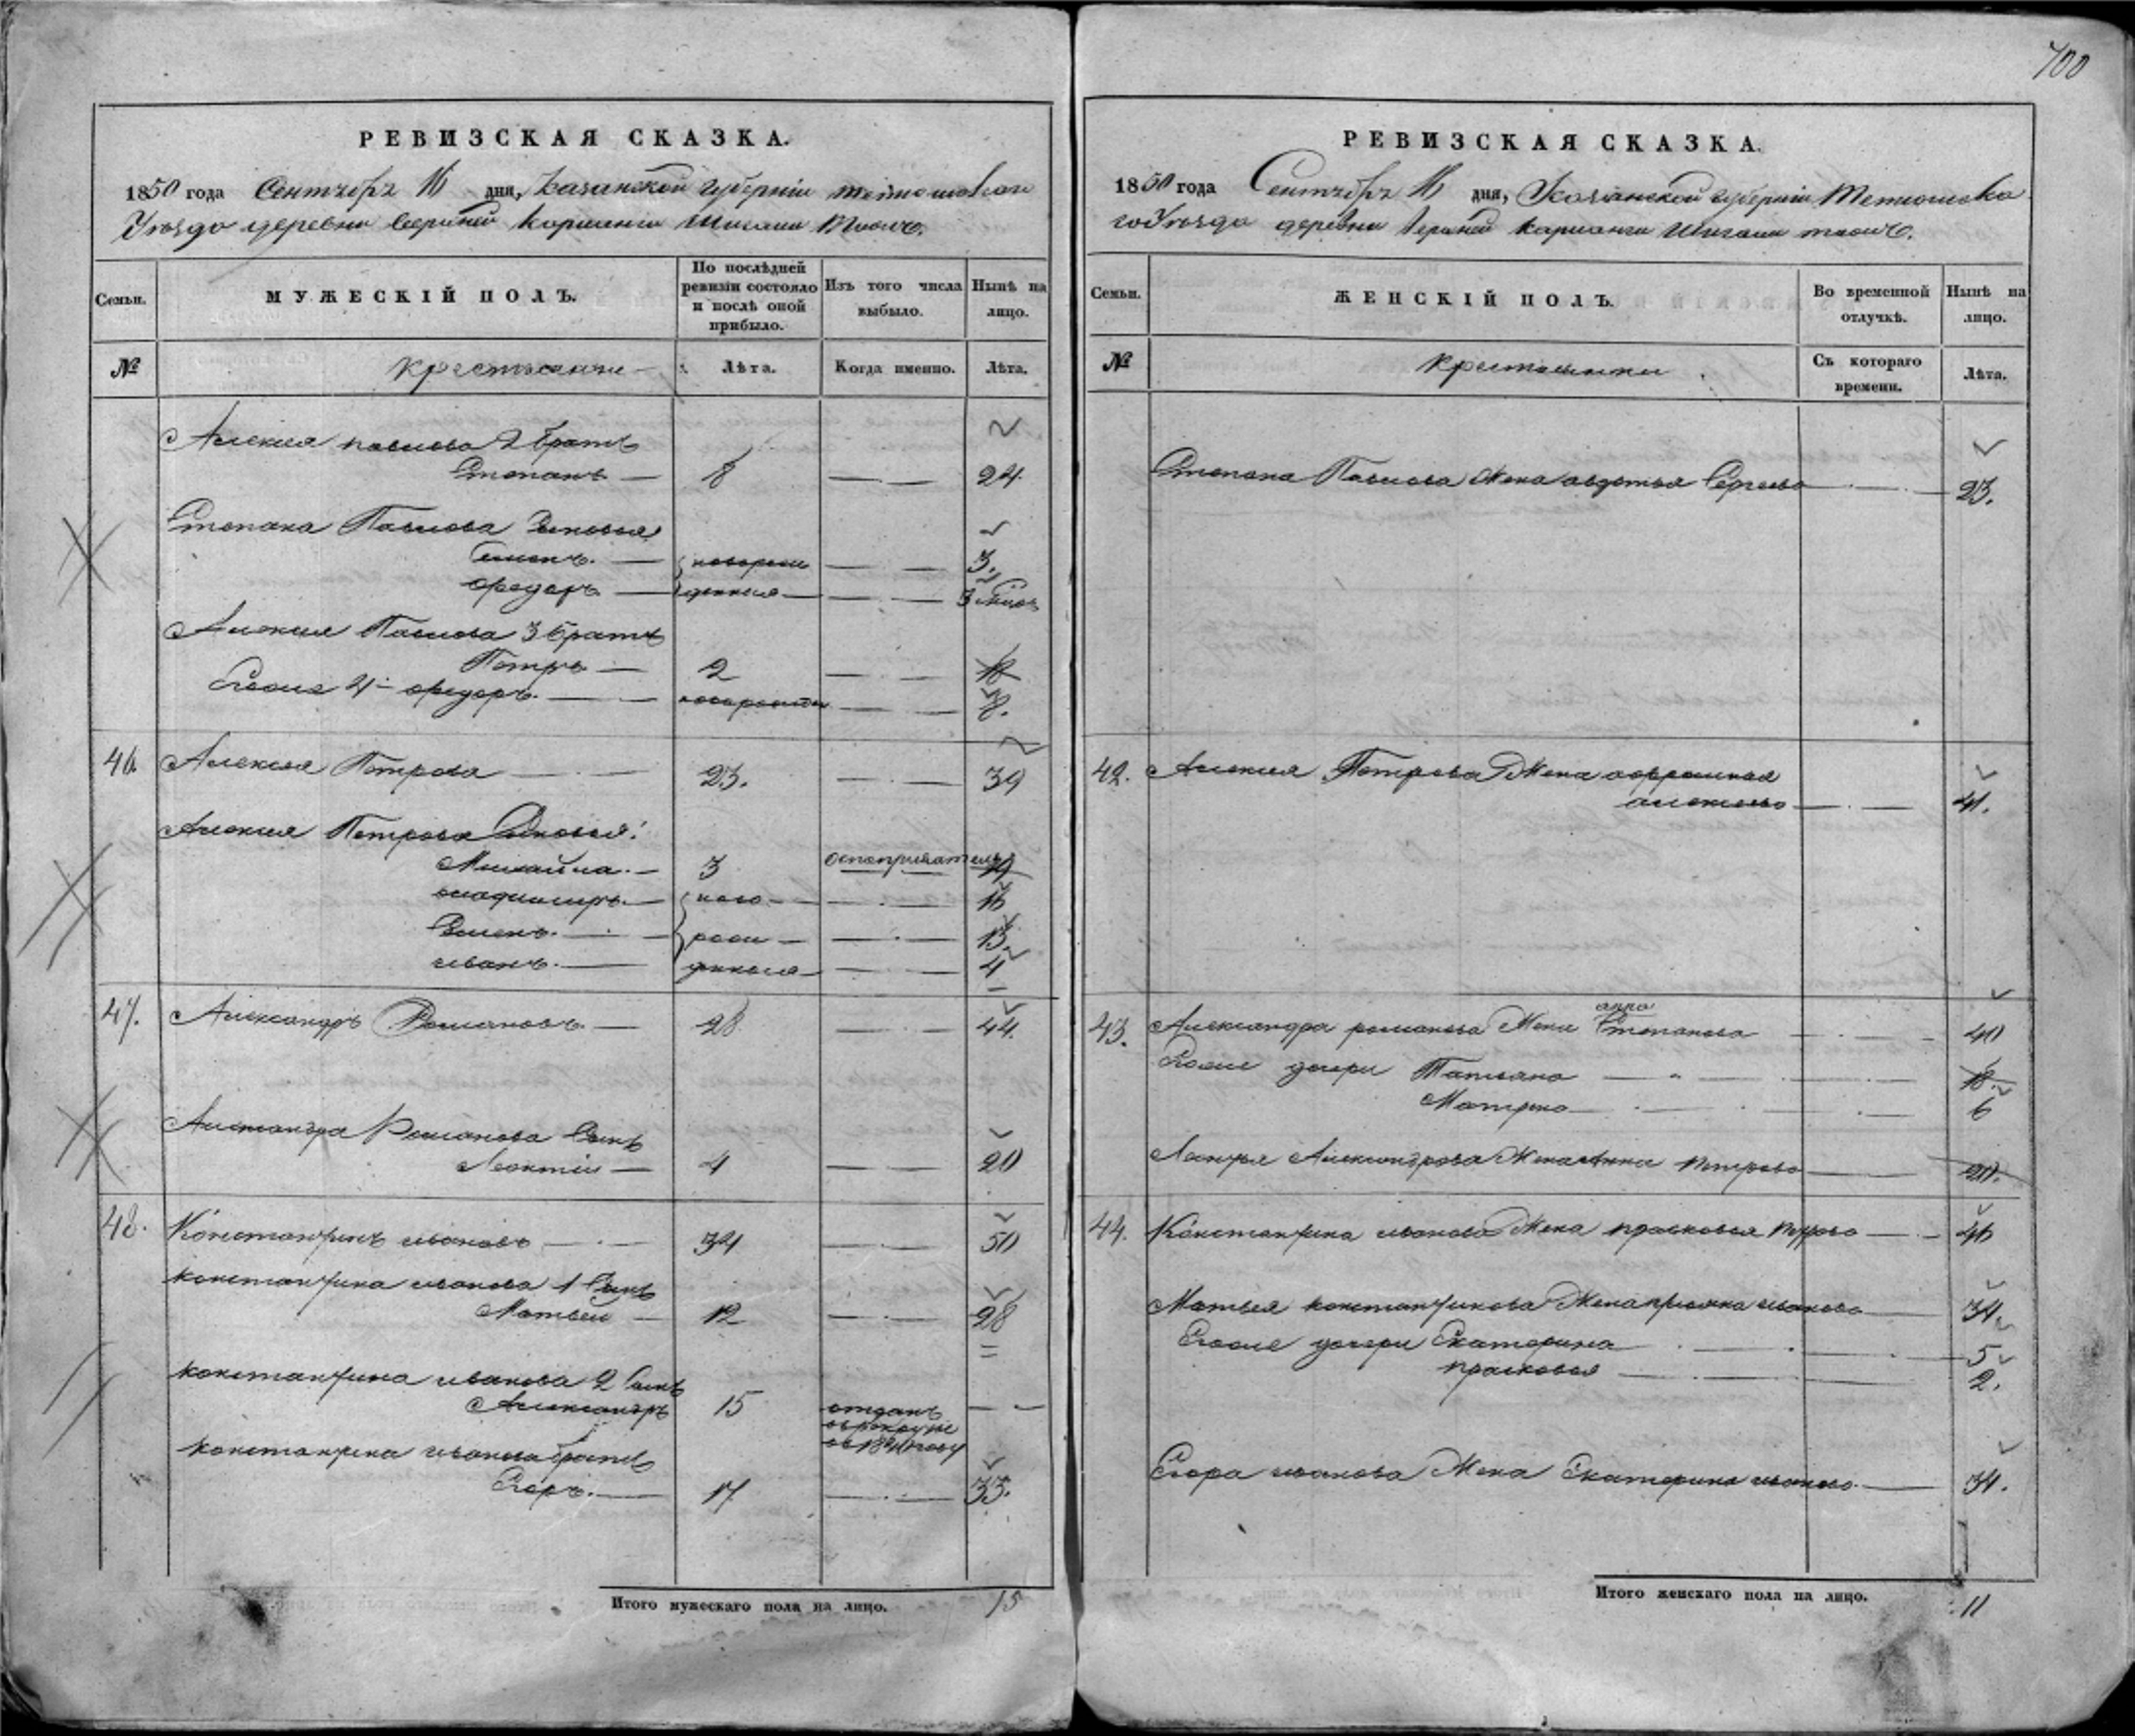 700
РЕВИЗСКАЯ СКАЗКА.
1850 года Сентября 16 дня, Казанской губерніи Тетюшскаго
Уѣзда деревни Верхней
Семьи.
МУЖЕСКІЙ ПОЛЪ.
По послѣдней ревизіи состояло и послѣ оной прибыло.
Изъ того числа выбыло.
Нынѣ на лицо.
№
Крестьяне
Лѣта.
Когда именно.
Лѣта.
Алексея Павлова 2 братъ
Степанъ — 8 — 24.
Степана Павлова сыновья
Семенъ. — новорож 3.
Федоръ — денныя — 3 мѣсяц
Алексея Павлова 3 братъ
Петръ — 2 — 18
Егоже 4й Федоръ. — новорожден — 8.
46. Алексея Петрова — 23. — 39
Алексея Петрова сыновья:
Михайла. — 3 оспопрививатель 19
владимиръ. — ново — 16
Семенъ. — рож — 13.
иванъ. — денныя — 4
47. Александръ Романовъ. — 28 — 44.
Александра Романова сынъ
Леонтій — 4 — 20
48. Константинъ ивановъ — 34 — 50
константина иванова 1 сынъ
Матвей — 12 — 28
константина иванова 2 сынъ
Александръ 15 отданъ
в рекруты
въ 1841 году
константина иванова братъ
Егоръ. — 17 — 33.
Итого мужескаго пола на лицо. 15
РЕВИЗСКАЯ СКАЗКА.
1850 года Сентября 16 дня, Казанской губерніи Тетюшска
го Уѣзда деревни Верхней
Семьи.
ЖЕНСКІЙ ПОЛЪ.
Во временной отлучкѣ.
Нынѣ на лицо.
№
Крестьянки
Съ котораго времени.
Лѣта.
Степана Павлова Жена авдотья Сергеева — 23.
42. Алексея Петрова Жена
алексева — 41.
43. Александра романова Жена анна
Степанова — 40
Егоже дочери Татьяна — 18.
Матрена — 6
Леонтья Александрова Жена Анна Петрова — 20.
44. Константина иванова Жена прасковья Петрова — 46
Матвея константинова Жена иванова — 34.
Егоже дочери Екатерина — 5
прасковья — 2.
Егора иванова Жена Екатерина иванова. — 34.
Итого женскаго пола на лицо. 11